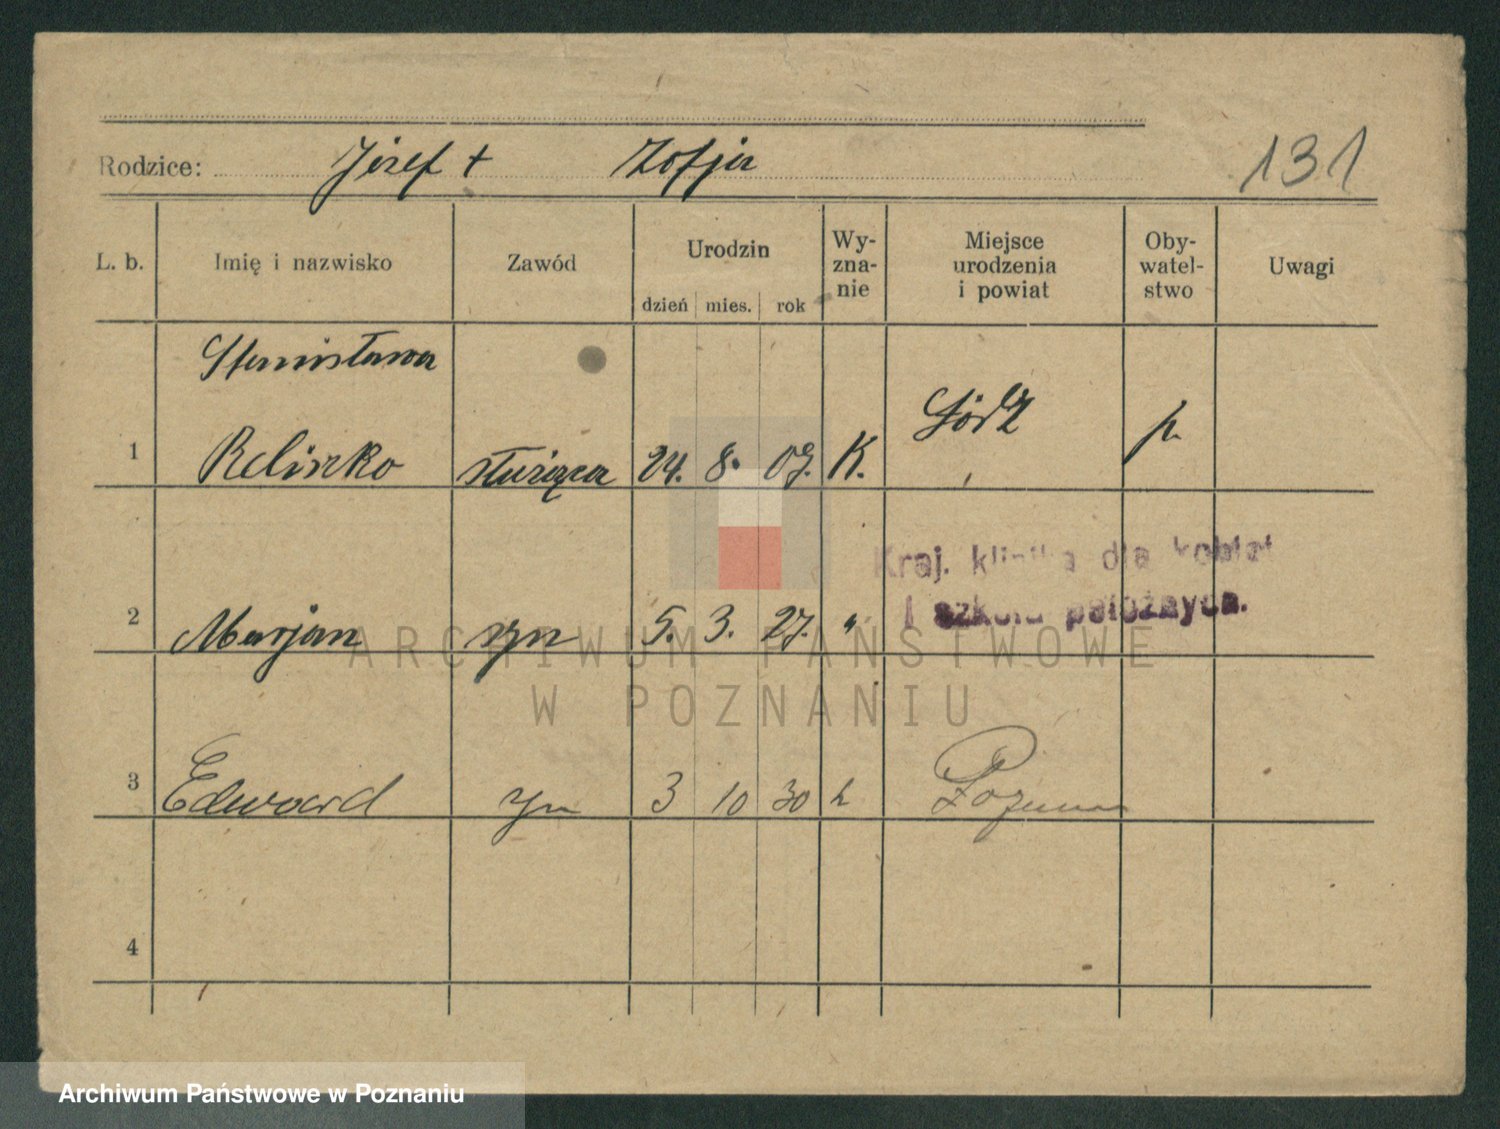 Rodzice: Józef + Zofja
131
L. b. Imię i nazwisko Zawód Urodzin dzień mies. rok Wy-zna-nie Miejsce urodzenia i powiat Oby-watel-stwo Uwagi
Stanisława
1 Reliszko służąca 24. 8. 07. K. Łódź p.
Kraj. klinika dla kobiet
i szkoła położnych.
2 Marjan syn 5. 3. 27. "
3 Edward syn 3 10 30 k Poznań
4
ARCHIWUM PAŃSTWOWE
W POZNANIU
Archiwum Państwowe w Poznaniu